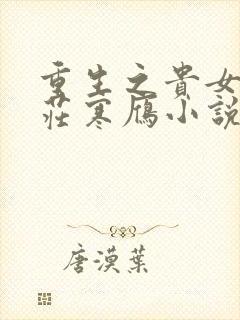 重生之貴女
莊寒雁小說
唐漠葉